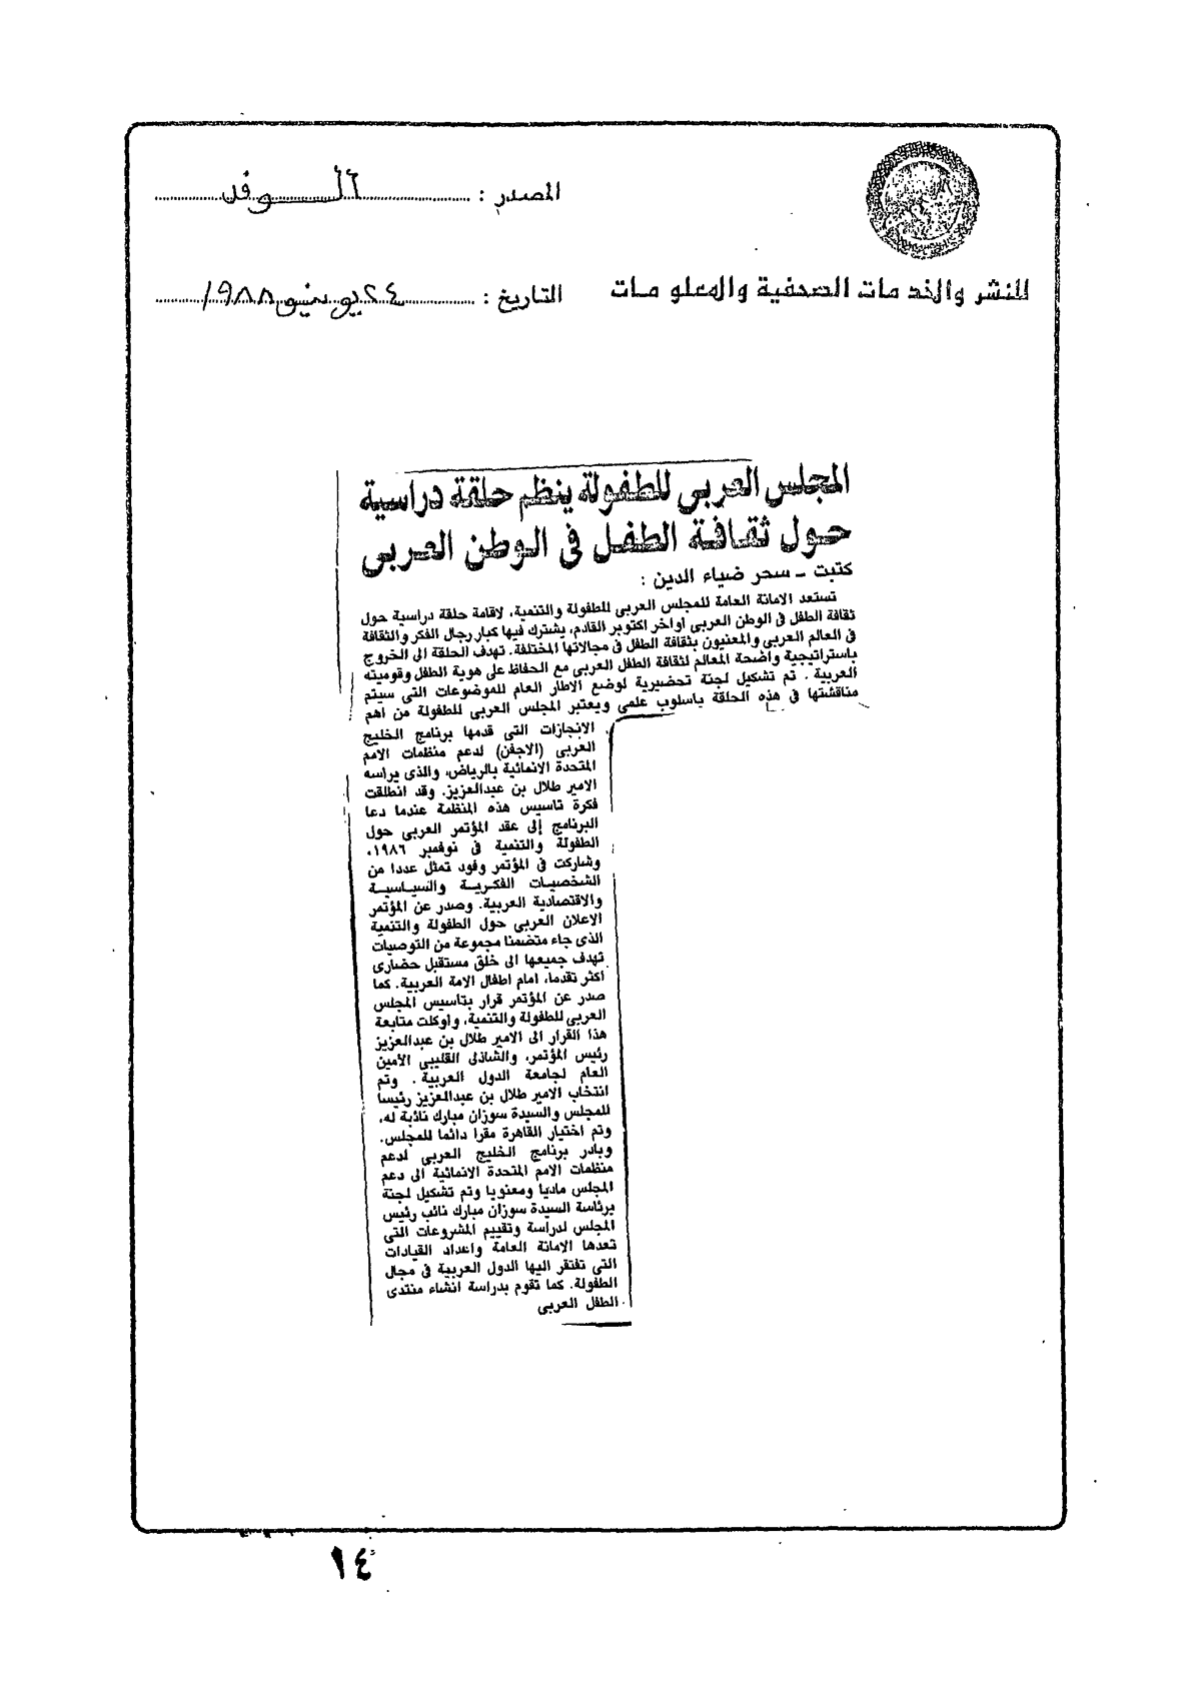 المصدر : الوفد
للنشر والخدمات الصحفية والمعلومات
التاريخ : ٢٤ يونيو ١٩٨٨
المجلس العربى للطفولة ينظم حلقة دراسية
حول ثقافة الطفل فى الوطن العربى
كتبت ــ سحر ضياء الدين :
تستعد الامانة العامة للمجلس العربى للطفولة والتنمية، لاقامة حلقة دراسية حول
ثقافة الطفل فى الوطن العربى أواخر اكتوبر القادم، يشترك فيها كبار رجال الفكر والثقافة
فى العالم العربى والمعنيون بثقافة الطفل فى مجالاتها المختلفة. تهدف الحلقة الى الخروج
باستراتيجية واضحة المعالم لثقافة الطفل العربى مع الحفاظ على هوية الطفل وقوميته
العربية . تم تشكيل لجنة تحضيرية لوضع الاطار العام للموضوعات التى سيتم
مناقشتها فى هذه الحلقة باسلوب علمى ويعتبر المجلس العربى للطفولة من اهم
الانجازات التى قدمها برنامج الخليج
العربى (الاجفن) لدعم منظمات الامم
المتحدة الانمائية بالرياض، والذى يراسه
الامير طلال بن عبدالعزيز. وقد انطلقت
فكرة تاسيس هذه المنظمة عندما دعا
البرنامج إلى عقد المؤتمر العربى حول
الطفولة والتنمية فى نوفمبر ١٩٨٦،
وشاركت فى المؤتمر وفود تمثل عددا من
الشخصيات الفكرية والسياسية
والاقتصادية العربية. وصدر عن المؤتمر
الاعلان العربى حول الطفولة والتنمية
الذى جاء متضمنا مجموعة من التوصيات
تهدف جميعها الى خلق مستقبل حضارى
أكثر تقدما، امام اطفال الامة العربية. كما
صدر عن المؤتمر قرار بتاسيس المجلس
العربى للطفولة والتنمية، واوكلت متابعة
هذا القرار الى الامير طلال بن عبدالعزيز
رئيس المؤتمر، والشاذلى القليبى الأمين
العام لجامعة الدول العربية . وتم
انتخاب الامير طلال بن عبدالعزيز رئيسا
للمجلس والسيدة سوزان مبارك نائبة له،
وتم اختيار القاهرة مقرا دائما للمجلس.
وبادر برنامج الخليج العربى لدعم
منظمات الامم المتحدة الانمائية الى دعم
المجلس ماديا ومعنويا وتم تشكيل لجنة
برئاسة السيدة سوزان مبارك نائب رئيس
المجلس لدراسة وتقييم المشروعات التى
تعدها الامانة العامة واعداد القيادات
التى تفتقر اليها الدول العربية فى مجال
الطفولة. كما تقوم بدراسة انشاء منتدى
الطفل العربى
١٤